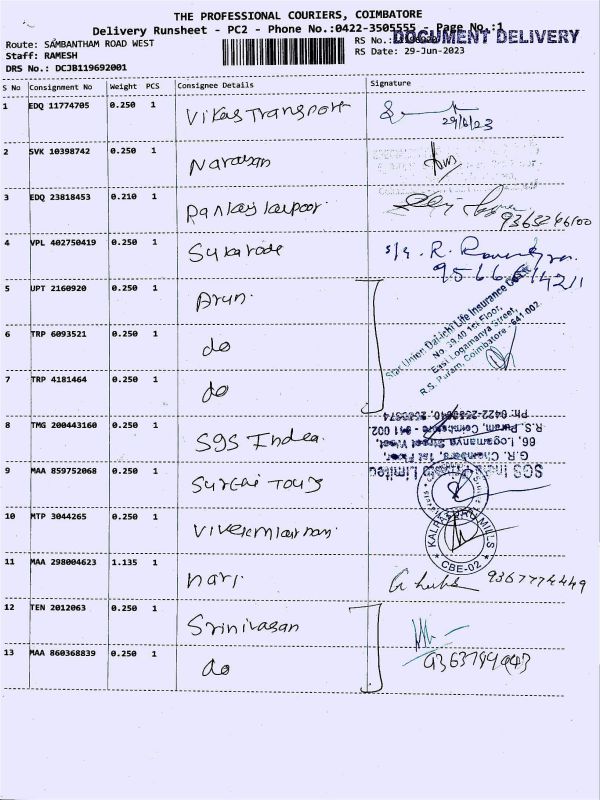 THE PROFESSIONAL COURIERS, COIMBATORE
Delivery Runsheet - PC2 - Phone No.:0422-3505555 - Page No.:1
DOCUMENT DELIVERY
Route: SAMBANTHAM ROAD WEST RS No.:
Staff: RAMESH RS Date: 29-Jun-2023
DRS No.: DCJB119692001
S No Consignment No Weight PCS Consignee Details Signature
1 EDQ 11774705 0.250 1 Vikas Transport 29/6/23
2 SVK 10398742 0.250 1 Narayan
3 EDQ 23818453 0.210 1 Pankaj kapoor.
4 VPL 402750419 0.250 1 S/g. R.
5 UPT 2160920 0.250 1 Arun.
Star Union Dai-ichi Life Insurance
No. 39,40 1st Floor,
East Logamanya Street,
R.S. Puram, Coimbatore - 641 002
6 TRP 6093521 0.250 1 do
7 TRP 4181464 0.250 1 do
8 TMG 200443160 0.250 1 SGS India.
SGS India Private Limited
G.R. Chambers, 1st Floor,
66, Logamanya Street West,
R.S. Puram, Coimbatore - 641 002
9 MAA 859752068 0.250 1 Tours
10 MTP 3044265 0.250 1
KALPATARU MILLS
CBE-02
11 MAA 298004623 1.135 1 Hari. 9367774449
12 TEN 2012063 0.250 1 Srinivasan
13 MAA 860368839 0.250 1 do